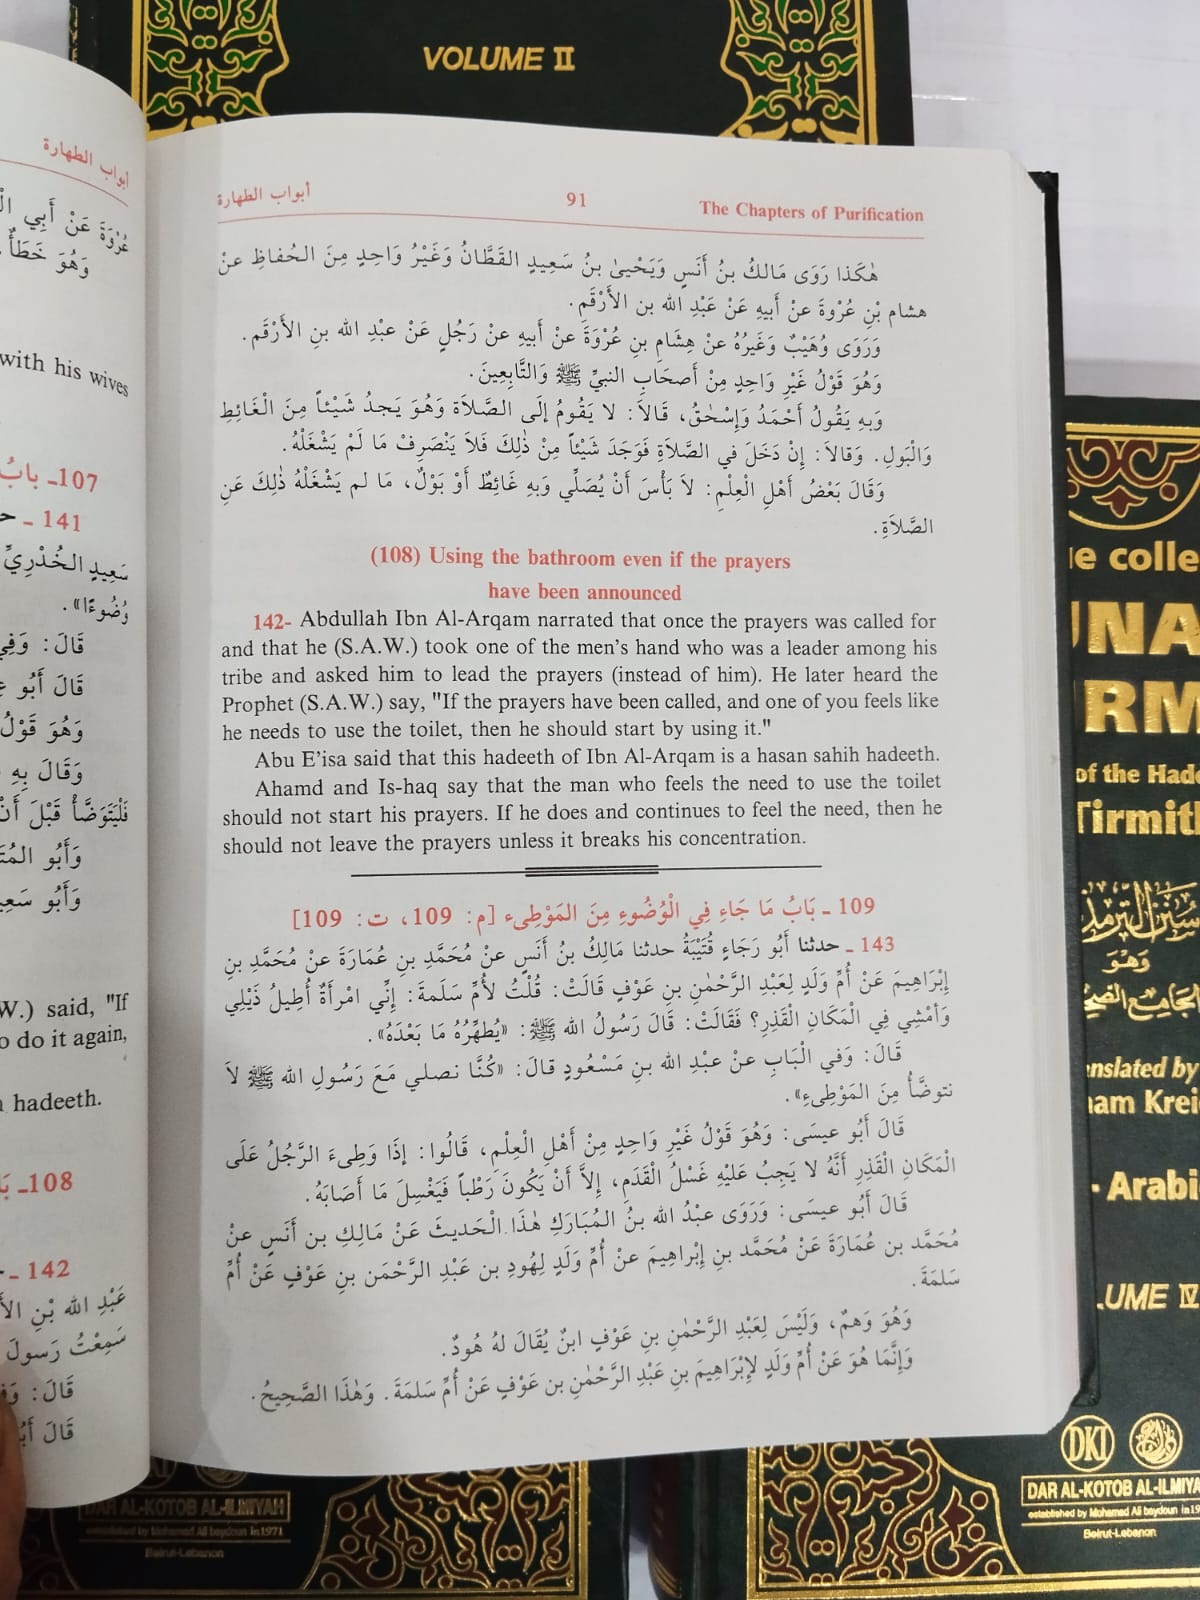 VOLUME II
أبواب الطهارة
عُرْوَةَ عَنْ أَبِي
وَهُوَ خَطَأٌ.
with his wives
107ـ بابُ
141 ـ
سَعِيدٍ الخُدْرِيِّ
وُضُوءًا».
قَالَ: وَفِي
قَالَ أَبُو
وَهُوَ قَوْلُ
وَقَالَ بِهِ
فَلْيَتَوَضَّأْ قَبْلَ أَنْ
وَأَبُو
وَأَبُو
W.) said, "If
o do it again,
hadeeth.
108ـ
142 ـ
عَبْدِ الله بْنِ
سَمِعْتُ رَسولَ
قَالَ:
قَالَ
أبواب الطهارة 91 The Chapters of Purification
هٰكَذا رَوَى مَالكُ بنُ أَنَسٍ وَيَحْيىٰ بنُ سَعِيدٍ القَطَّانُ وَغَيْرُ وَاحِدٍ مِنَ الحُفاظِ عنْ
هشام بْنِ عُرْوةَ عنْ أبيهِ عَنْ عَبْدِ الله بن الأَرْقَمِ.
وَرَوَى وُهَيْبٌ وَغَيرُهُ عنْ هِشَامِ بنِ عُرْوَةَ عنْ أبيهِ عنْ رَجُلٍ عَنْ عبْدِ الله بنِ الأَرْقَم.
وَهُوَ قَوْلُ غَيْرِ وَاحِدٍ مِنْ أَصحَابِ النبيِّ ﷺ وَالتَّابِعِينَ.
وَبِهِ يَقُولُ أَحْمَدُ وَإسْحٰقُ، قَالاَ: لا يَقُومُ إلَى الصَّلاَةِ وَهُوَ يَجدُ شَيْئاً مِنَ الْغَائِطِ
وَالْبَولِ. وَقالاَ: إنْ دَخَلَ في الصَّلاَةِ فَوَجَدَ شَيْئاً مِنْ ذٰلِكَ فَلاَ يَنْصَرِفْ مَا لَمْ يَشْغَلْهُ.
وَقَالَ بَعْضُ أَهْلِ الْعِلْمِ: لاَ بَأْسَ أنْ يُصَلِّي وَبِهِ غَائِطٌ أَوْ بَوْلٌ، مَا لم يَشْغَلْهُ ذٰلِكَ عَنِ
الصَّلاَةِ.
(108) Using the bathroom even if the prayers
have been announced
142- Abdullah Ibn Al-Arqam narrated that once the prayers was called for
and that he (S.A.W.) took one of the men's hand who was a leader among his
tribe and asked him to lead the prayers (instead of him). He later heard the
Prophet (S.A.W.) say, "If the prayers have been called, and one of you feels like
he needs to use the toilet, then he should start by using it."
Abu E'isa said that this hadeeth of Ibn Al-Arqam is a hasan sahih hadeeth.
Ahamd and Is-haq say that the man who feels the need to use the toilet
should not start his prayers. If he does and continues to feel the need, then he
should not leave the prayers unless it breaks his concentration.
109 ـ بَابُ مَا جَاءِ فِي الْوُضُوءِ مِنَ المَوْطِىء [م: 109، ت: 109]
143 ـ حدثنا أَبُو رَجَاءٍ قُتَيْبَةُ حدثنا مَالِكُ بنُ أَنَسٍ عنْ مُحَمَّدِ بنِ عُمَارَةَ عنْ مُحَمَّدِ بنِ
إبْرَاهِيمَ عَنْ أُمِّ وَلَدٍ لِعَبْدِ الرَّحْمٰنِ بنِ عَوْفٍ قَالَتْ: قُلْتُ لأُمِّ سَلَمةَ: إنِّي امْرأَةٌ أُطِيلُ ذَيْلِي
وَأَمْشِي فِي الْمَكَانِ الْقَذِرِ؟ فَقَالَتْ: قَالَ رَسُولُ الله ﷺ: «يُطَهِّرُهُ مَا بَعْدَهُ».
قَالَ: وَفي الْبَابِ عنْ عبْدِ الله بنِ مَسْعُودٍ قالَ: «كُنَّا نصلي مَعَ رَسُولِ الله ﷺ لاَ
نتوضَّأُ مِنَ المَوْطِىءِ».
قَالَ أَبُو عيسَى: وَهُوَ قَوْلُ غَيْرِ وَاحِدٍ مِنْ أَهْلِ الْعِلْمِ، قَالُوا: إذَا وَطِىءَ الرَّجُلُ عَلَى
الْمَكَانِ الْقَذِرِ أَنَّهُ لا يَجِبُ عَلَيْهِ غَسْلُ الْقَدَمِ، إلاَّ أَنْ يَكُونَ رَطْباً فَيَغْسِلَ مَا أَصَابَهُ.
قَالَ أَبُو عيسَى: وَرَوَى عبْدُ الله بنُ المُبَارَكِ هٰذَا الْحَديثَ عَنْ مَالِكِ بن أَنَسٍ عنْ
مُحَمَّد بن عُمَارَةَ عَنْ مُحَمَّد بنِ إبْراهِيمَ عنْ أُمِّ وَلَدٍ لِهُودِ بن عَبْدِ الرَّحْمَن بنِ عَوْفٍ عَنْ أُمِّ
سَلمَةَ.
وَهُوَ وَهمٌ، وَلَيْسَ لِعَبْدِ الرَّحْمٰنِ بنِ عَوْفٍ ابنٌ يُقَالَ لهُ هُودٌ.
وَإنَّمَا هُوَ عَنْ أُمِّ وَلَدٍ لإبْرَاهِيمَ بنِ عَبْدِ الرَّحْمٰنِ بن عَوْفٍ عَنْ أُمِّ سَلمَةَ. وَهٰذَا الصَّحِيحُ.
e colle
UNA
IRM
of the Hade
Tirmith
سنن الترمذ
وَهُوَ
الجامع الصحي
anslated by
am Krei
- Arabi
LUME IV
DKI
DAR AL-KOTOB AL-ILMIYA
established by Mohamad Ali baydoun in 19
Beirut-Lebanon
DAR AL-KOTOB AL-ILMIYAH
established by Mohamad Ali baydoun in 1971
Beirut-Lebanon